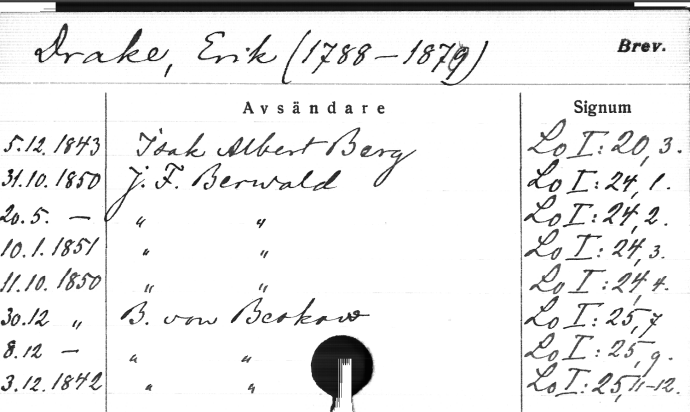 Drake, Erik (1788–1879) Brev.
Avsändare Signum
5.12. 1843 Isak Albert Berg Lo I: 20, 3.
31.10. 1850 J. F. Berwald Lo I: 24, 1.
20.5. — " " Lo I: 24, 2.
10.1. 1851 " " Lo I: 24, 3.
11.10. 1850 " " Lo I: 24, 4.
30.12 " B. von Beskow Lo I: 25, 7
8.12 — " " Lo I: 25, 9.
3.12. 1842 " " Lo I: 25, 11-12.